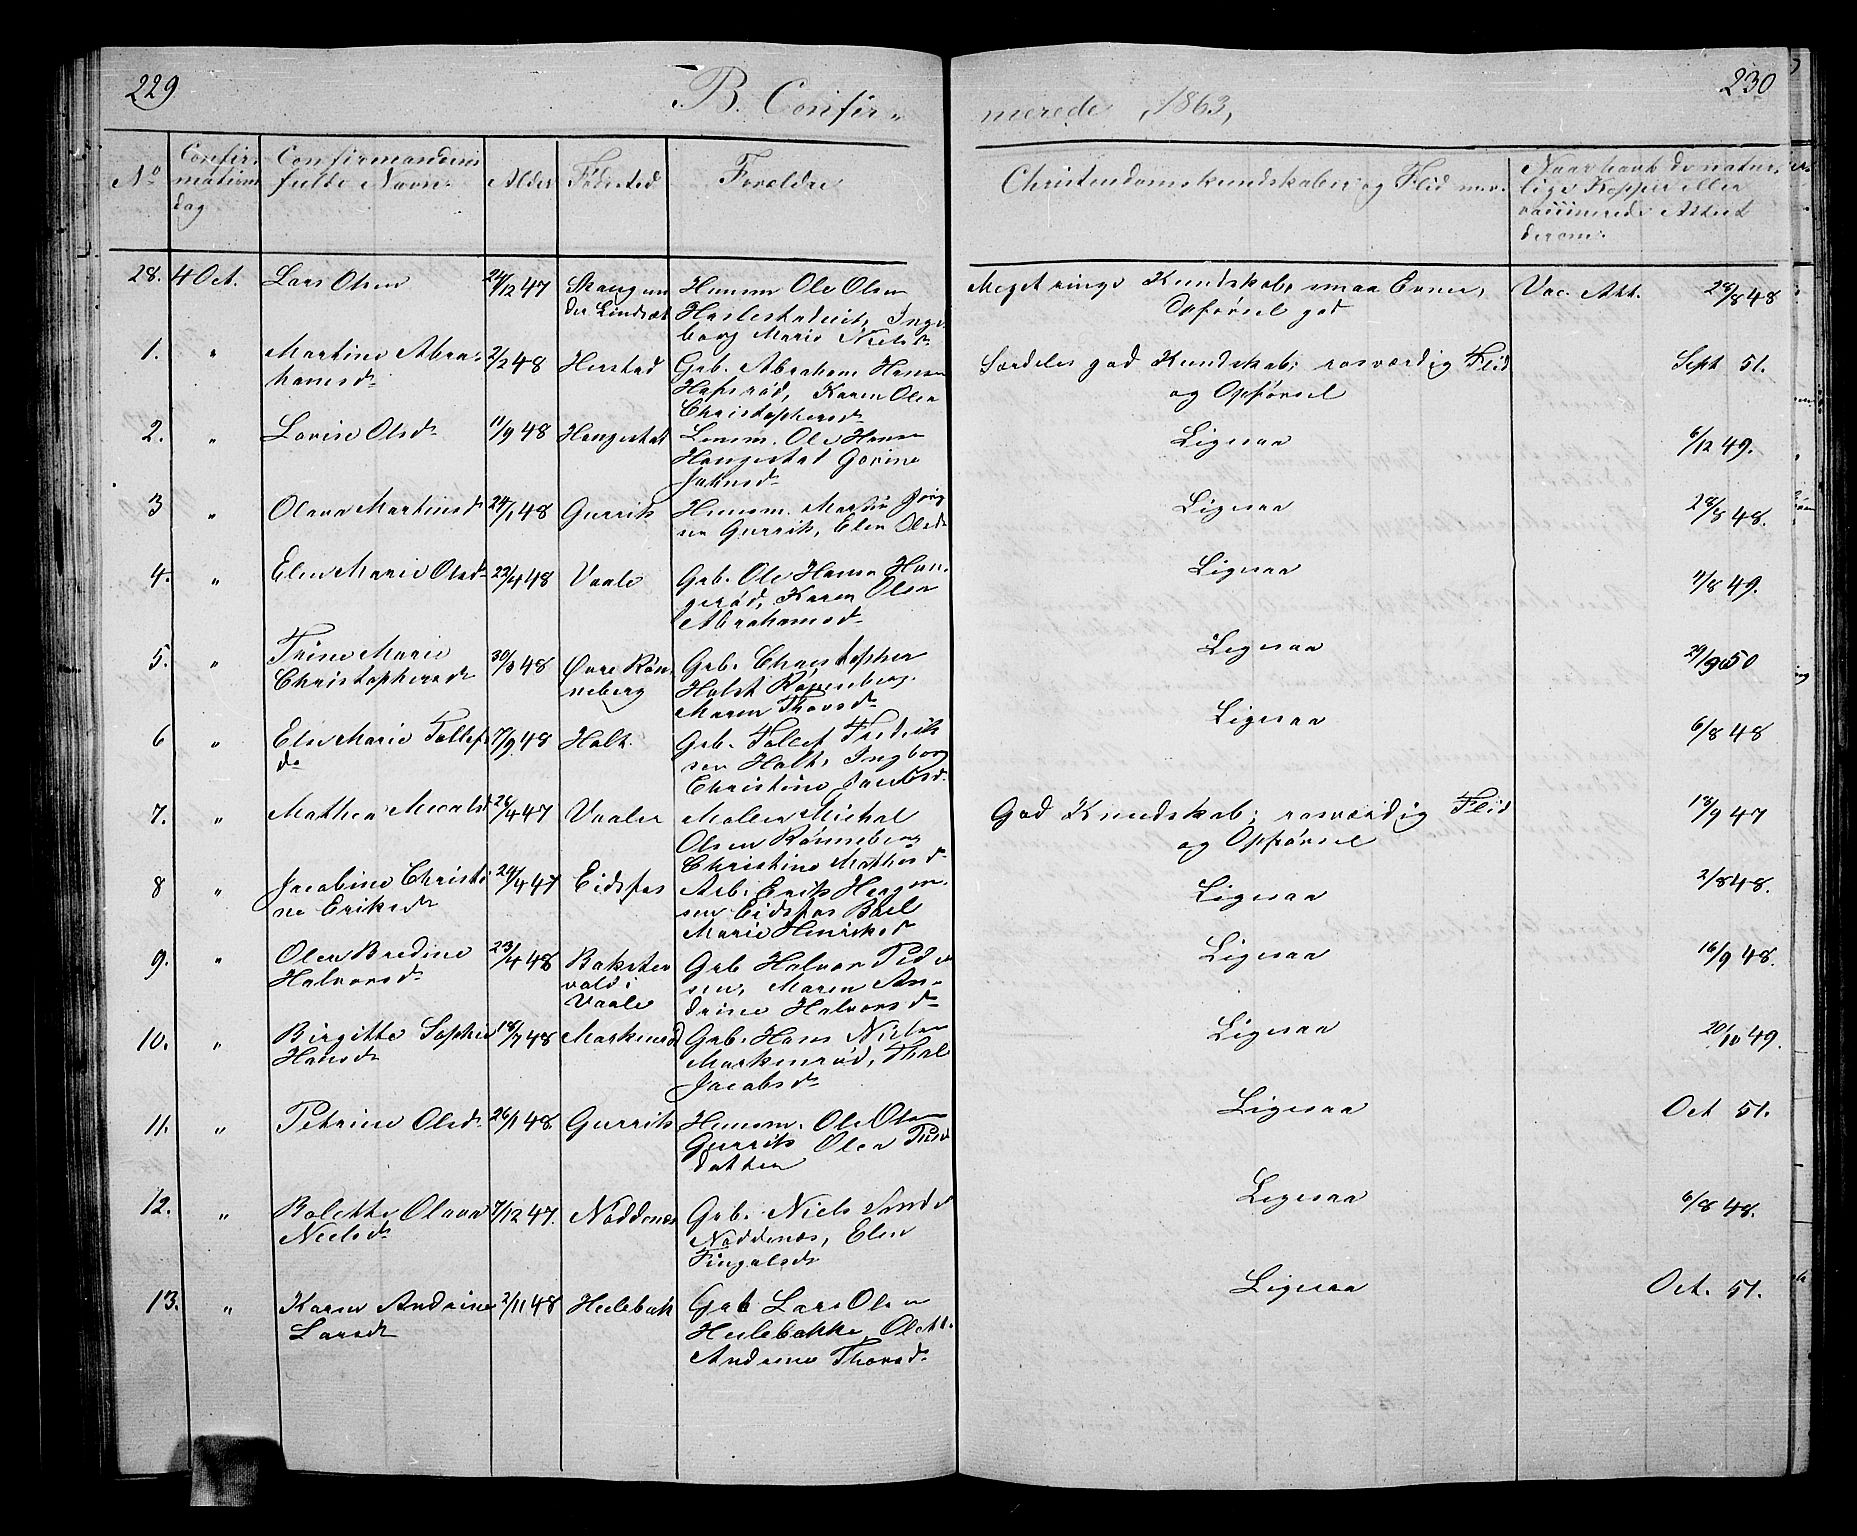 229
B. Confir-
merede 1863,
230
No
Confir-
mations
dag
Confirmandens
fulde Navn
Alder
Fødested
Forældre
Christendomskundskaber og Flid m.v.
Naar havt de natur-
lige Kopper eller
vaccinerede Attest
derom.
28. 4 Oct. Lars Olsen 24/12 47
Huusm Ole Olsen
Meget ringe Kundskab, smaa Evner,
Opførsel god
Vac. Att. 28/8 48
borg Marie Nielsd
1. " Martine Abra-
hamsd 2/2 48 Herstad
Grb. Abraham Hansen
Hafsrød, Karen Olea
Christophersd
Særdeles god Kundskab; rosværdig Flid
og Opførsel
Sept 51.
2. " Lovise Olsd 11/9 48 Hangestad
Ole Hansen
Hangestad Gorine
Jahnsd
Ligesaa
6/12 49.
3 " Olava Martinsd 24/1 48 Gurrik
Huusm. Martin Jørg
en Gurrik, Elen Olsd
Ligesaa
28/8 48.
4. " Elen Marie Olsd 23/4 48 Vaale
Grb. Ole Hansen Han-
gerød, Karen Olea
Abrahamsd
Ligesaa
7/8 49.
5. " Trine Marie
Christophersd 30/3 48 Øvre Røn-
neberg
Grb. Christopher
Holst Rønneberg.
Maren Thorsd
Ligesaa
29/9 50
6 " Else Marie Tollefs
d 7/9 48 Holt.
Grb. Tollef Fredrik
sen Holt, Ingborg
Christine Jacobsd.
Ligesaa
6/8 48
7. " Mathea 28/4 47 Vaaler
Maler Michal
Olsen Rønneberg
Christine Mathisd
God Kundskab; rosværdig Flid
og Opførsel
13/9 47
8 " Jacobine Christi
ne Eriksd 29/4 47 Eidsfos
Arb. Erik
sen Eidsfos Boel
Marie Henriksd
Ligesaa
2/8 48.
9. " Olea Bredine
Halvorsd 23/4 48 Bakster
vold i
Vaale
Grb Halvor Peder
sen, Maren An-
drine Halvorsd
Ligesaa
16/9 48.
10. " Birgitte Sophie
Hansd 18/7 48 Markenrød
Grb. Hans Nielsen
Markenrød, Thale
Jacobsd
Ligesaa
20/10 49.
11. " Petrine Olsd 26/1 48 Gurrik
Huusm. Ole Olsen
Gurrik Olea Peders
datter
Ligesaa
Oct 51.
12. " Bolette Olava
Nielsd 7/12 47. Noddenæs
Grb. Niels
Noddenæs, Elen
Fingalsd
Ligesaa
6/8 48.
13. " Karen Andrine
Larsd 2/11 48 Hislebak
Grb Lars Olsen
Hislebakke, Olette
Andrine Thorsd.
Ligesaa
Oct. 51.